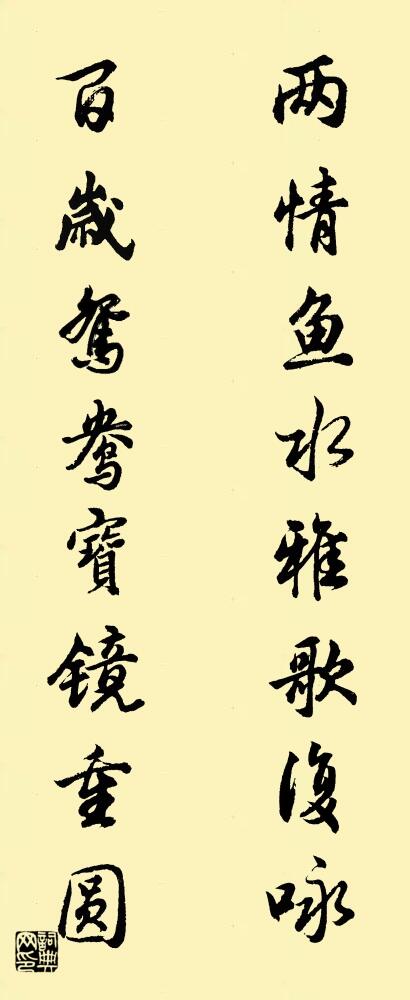 两情鱼水雅歌復咏
百歲鸳鸯寶镜重圆
詞典
网印